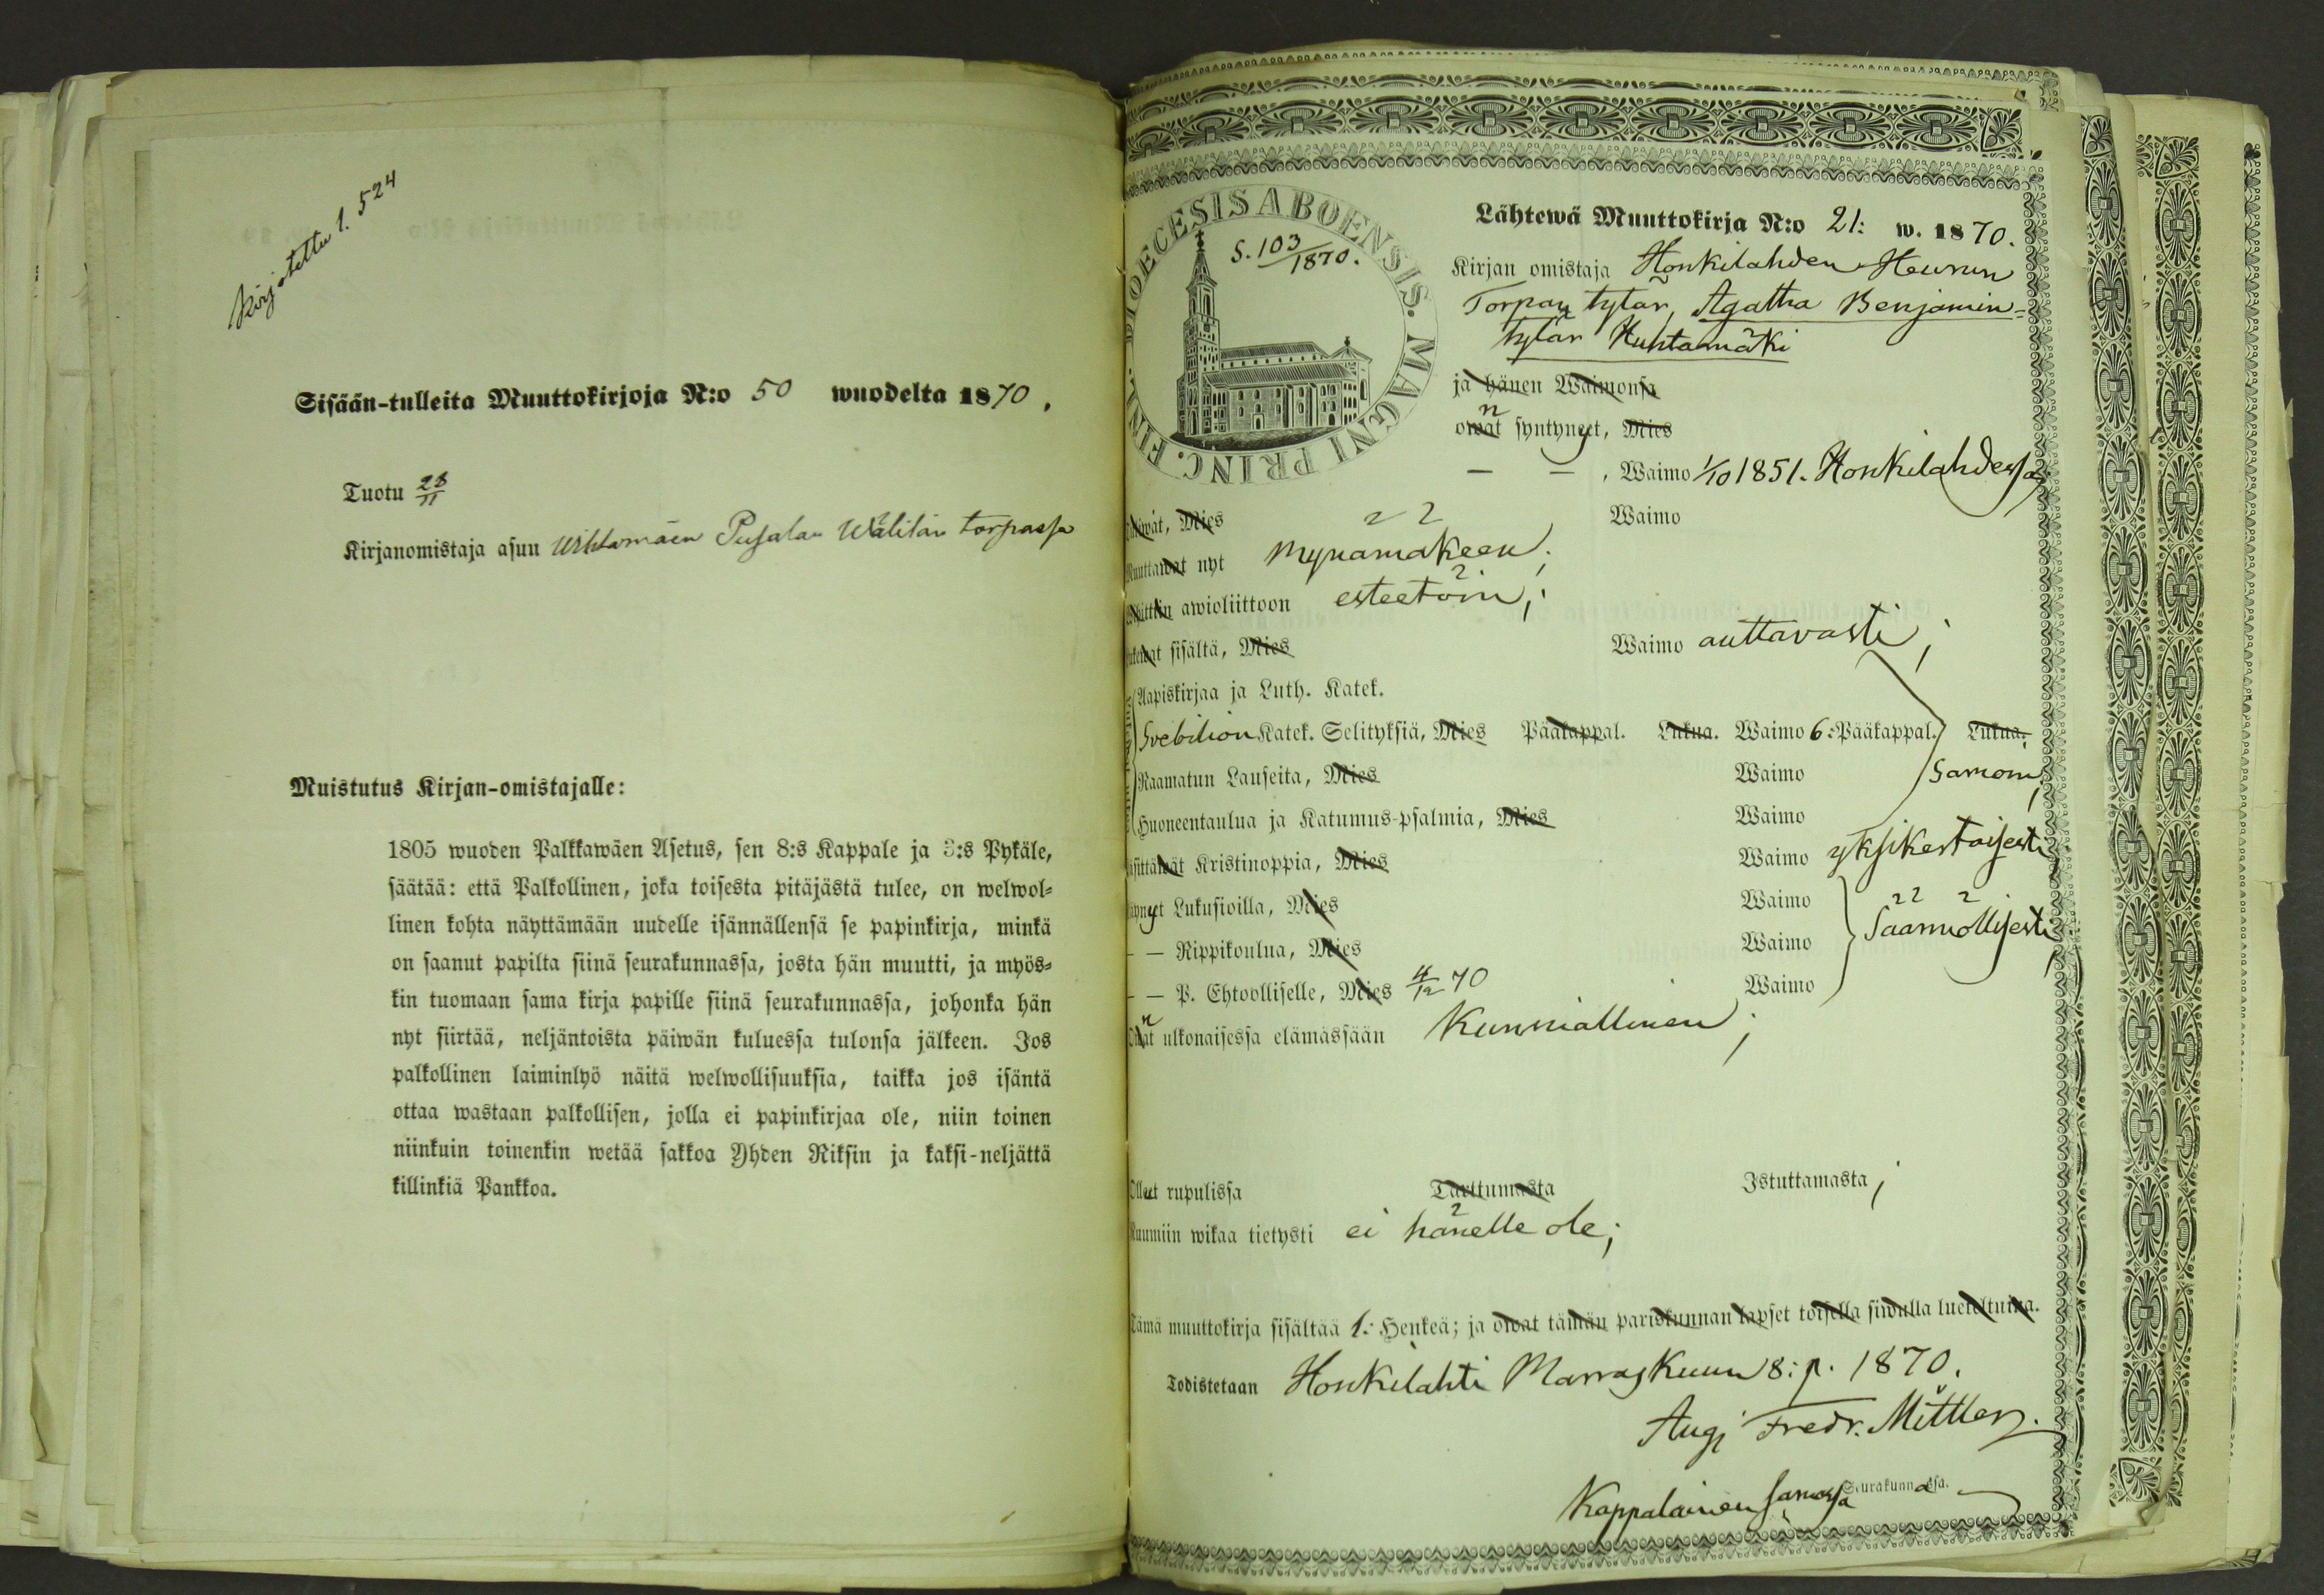 Kirjotettu 1. 524
Sisään-tulleita Muuttokirjoja N:o 50 wuodelta 1870.
Tuotu 28/11
Kirjanomistaja asuu torpassa
Muistutus Kirjan-omistajalle:
1805 wuoden Palkkawäen Asetus, sen 8:s Kappale ja 3:s Pykäle,
säätää: että Palkollinen, joka toisesta pitäjästä tulee, on welwol-
linen kohta näyttämään uudelle isännällensä se papinkirja, minkä
on saanut papilta siinä seurakunnassa, josta hän muutti, ja myös-
kin tuomaan sama kirja papille siinä seurakunnassa, johonka hän
nyt siirtää, neljäntoista päiwän kuluessa tulonsa jälkeen. Jos
palkollinen laiminlyö näitä welwollisuuksia, taikka jos isäntä
ottaa wastaan palkollisen, jolla ei papinkirjaa ole, niin toinen
niinkuin toinenkin wetää sakkoa Yhden Riksin ja kaksi-neljättä
killinkiä Pankkoa.
DIOECESIS ABOENSIS. MAGNI PRINC. FINL.
S. 103/1870.
Lähtewä Muuttokirja N:o 21: w. 1870.
Kirjan omistaja Honkilahden Heurun
Torpan tytär, Agatha Benjamin=
tytär Huhtamäki
ja hänen Waimonsa
owat n syntyneet, Mies
— — , Waimo 1/10 1851. Honkilahdessa
Mies Waimo
Muuttawat nyt Mynämäkeen;
awioliittoon esteetöin;
sisältä, Mies Waimo auttavasti;
Aapiskirjaa ja Luth. Katek.
Svebilion Katek. Selityksiä, Mies Pääkappal. Lukua. Waimo 6: Pääkappal. Lukua.
Raamatun Lauseita, Mies Waimo Samoin;
Huoneentaulua ja Katumus-psalmia, Mies Waimo
Kristinoppia, Mies Waimo yksikertaisesti
Lukusioilla, Mies Waimo
— — Rippikoulua, Mies Waimo Säännöllisesti
— — P. Ehtoolliselle, Mies 4/12 70 Waimo
Owat n ulkonaisessa elämässään Kunniallinen;
Olleet rupulissa Tarttumasta Istuttamasta;
Ruumiin wikaa tietysti ei hänelle ole;
Tämä muuttokirja sisältää 1: Henkeä; ja owat tämän pariskunnan lapset toisella siwulla lueteltuina.
Todistetaan Honkilahti Marraskuun 8: p. 1870.
Aug. Fredr. Mittler.
Kappalainen samassa Seurakunnassa.